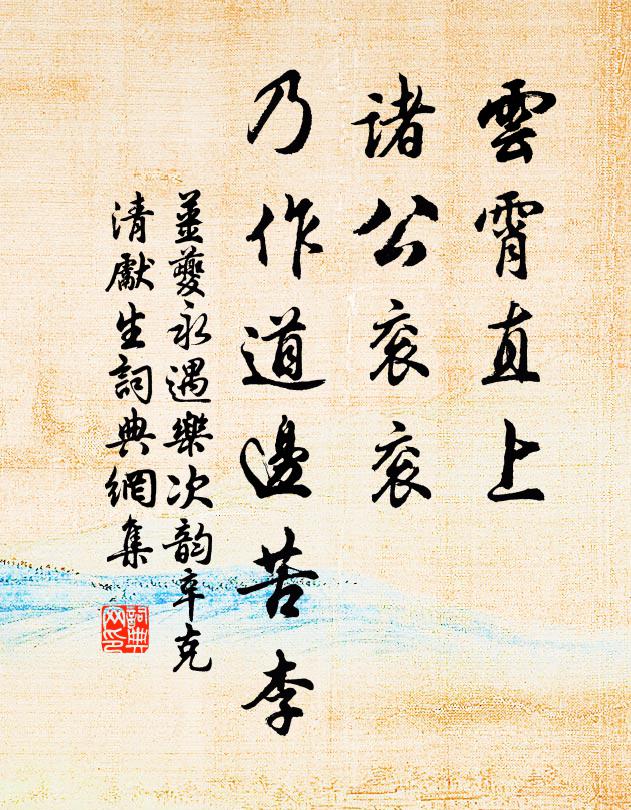 雲霄直上
諸公衮衮
乃作道邊苦李
姜夔永遇樂次韵辛克
清獻生詞典網集
詞典网印